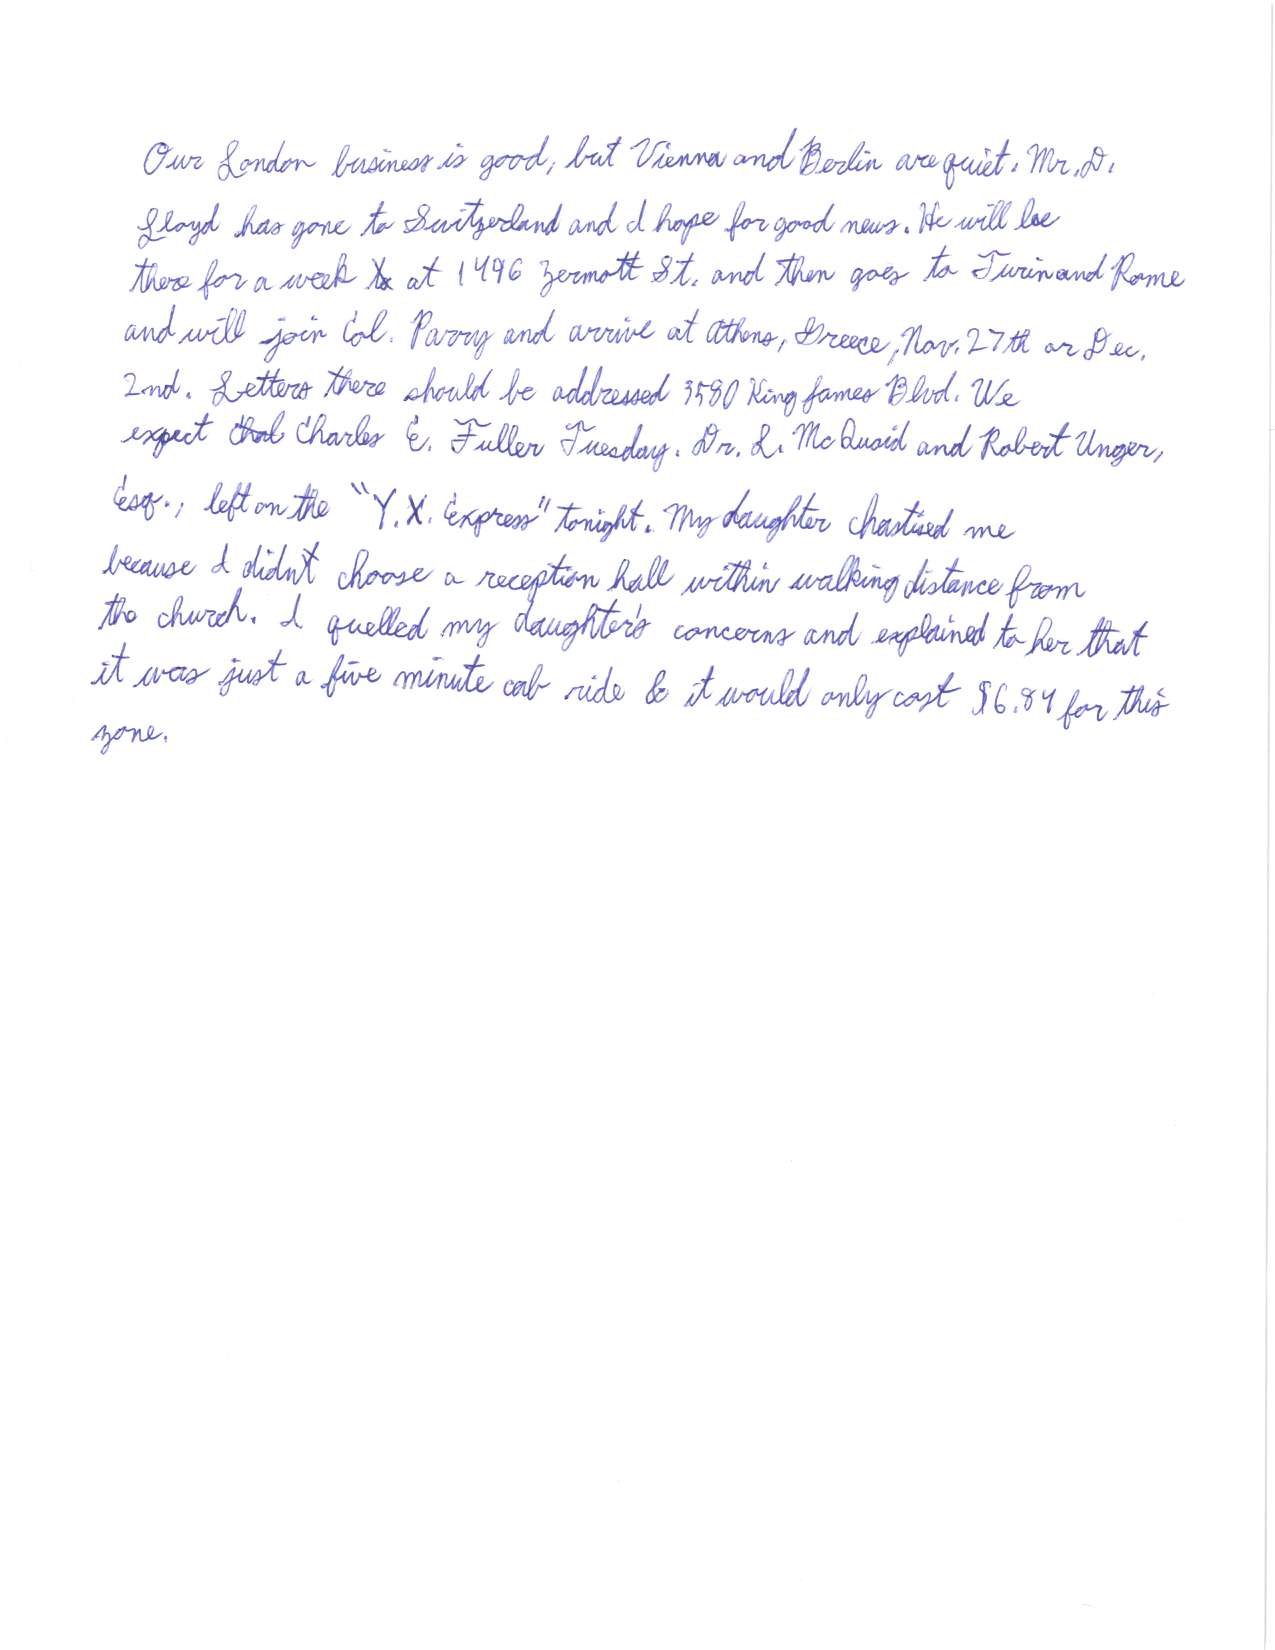 Our London business is good, but Vienna and Berlin are quiet. Mr. D.
Lloyd has gone to Switzerland and I hope for good news. He will be
there for a week at 1496 Zermott St. and then goes to Turin and Rome
and will join Col. Parry and arrive at Athens, Greece, Nov. 27th or Dec.
2nd. Letters there should be addressed 3580 King James Blvd. We
expect Charles E. Fuller Tuesday. Dr. L. McQuaid and Robert Unger,
Esq., left on the "Y.X. Express" tonight. My daughter chastised me
because I didn't choose a reception hall within walking distance from
the church. I quelled my daughter's concerns and explained to her that
it was just a five minute cab ride & it would only cost $6.84 for this
zone.